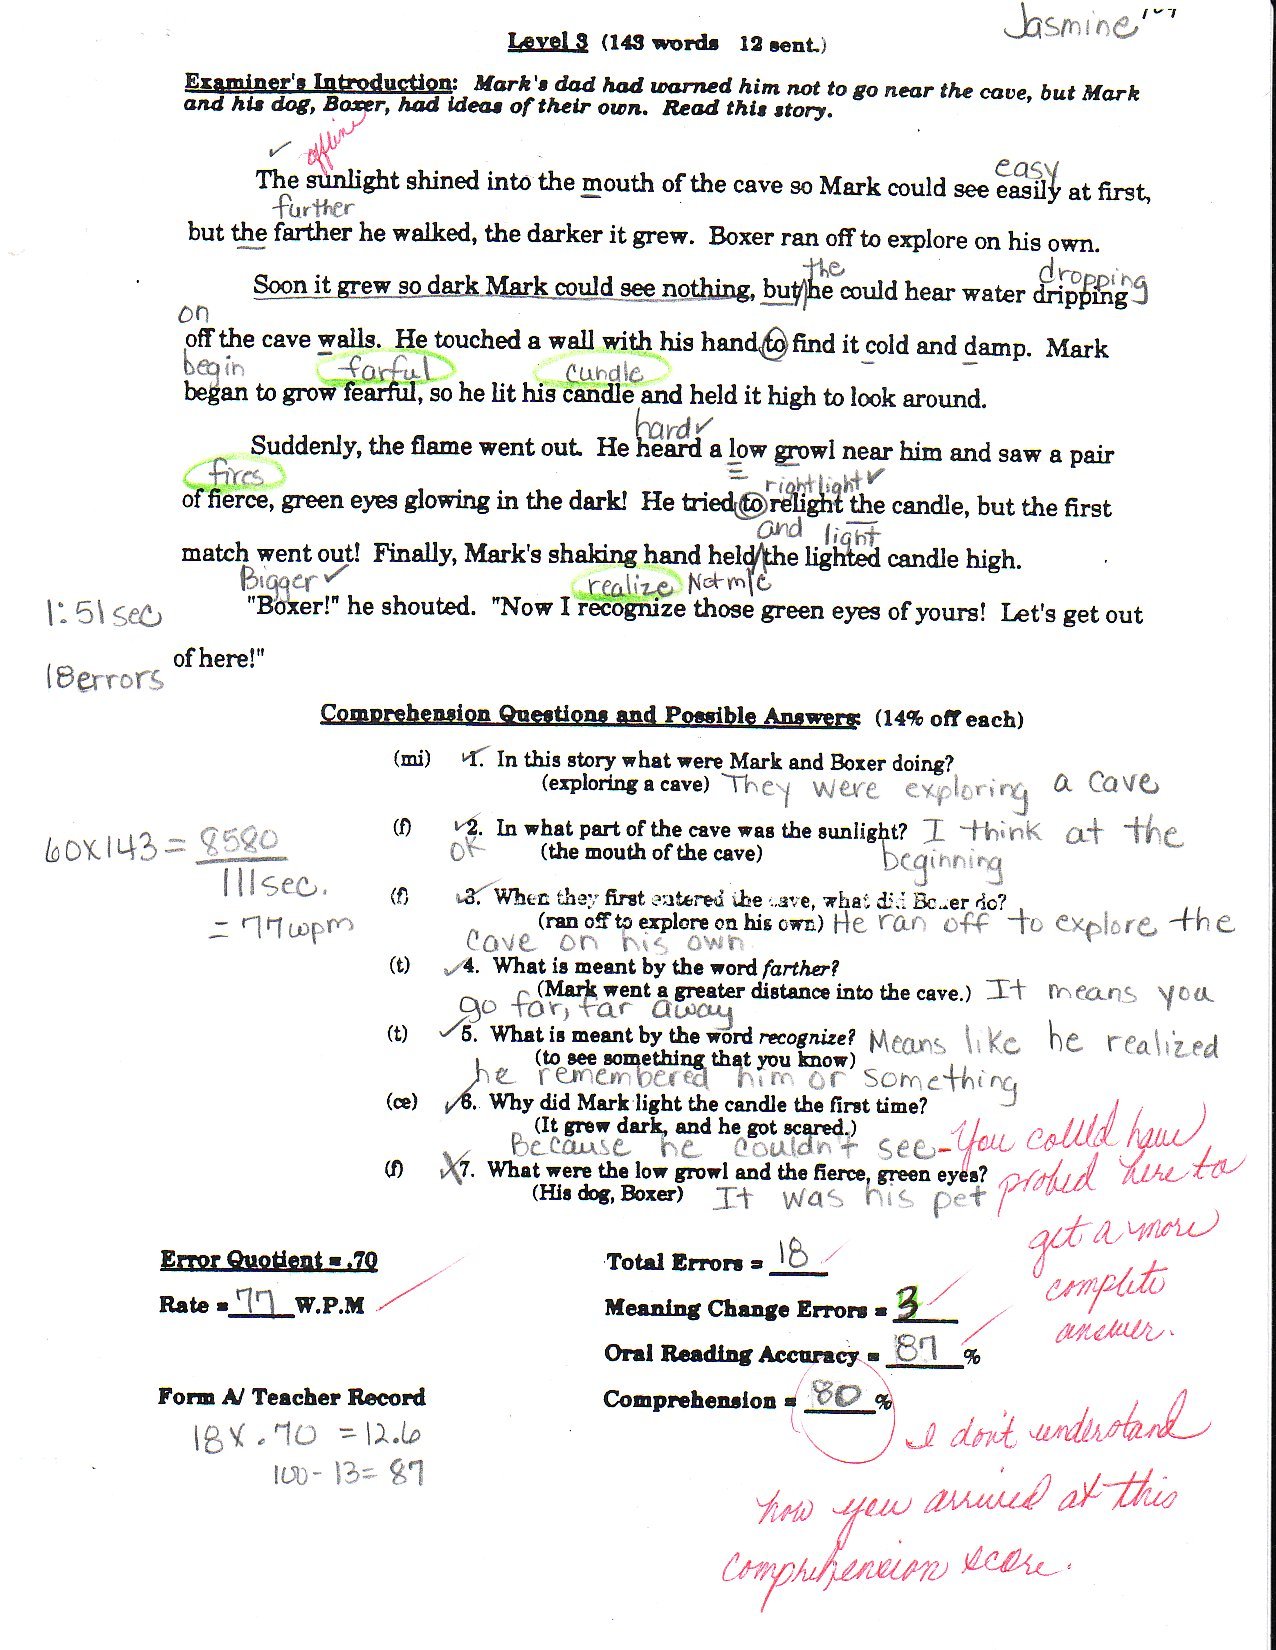 Jasmine
Level 3 (143 words 12 sent.)
Examiner's Introduction: Mark's dad had warned him not to go near the cave, but Mark
and his dog, Boxer, had ideas of their own. Read this story.
offline
easy
The sunlight shined into the mouth of the cave so Mark could see easily at first,
further
but the farther he walked, the darker it grew. Boxer ran off to explore on his own.
the dropping
Soon it grew so dark Mark could see nothing, but he could hear water dripping
on
off the cave walls. He touched a wall with his hand to find it cold and damp. Mark
begin farful cundle
began to grow fearful, so he lit his candle and held it high to look around.
hard ✓
Suddenly, the flame went out. He heard a low growl near him and saw a pair
fires rightlight ✓
of fierce, green eyes glowing in the dark! He tried to relight the candle, but the first
and light
match went out! Finally, Mark's shaking hand held the lighted candle high.
Bigger ✓ realize Not m/c
"Boxer!" he shouted. "Now I recognize those green eyes of yours! Let's get out
1:51 sec
of here!"
18 errors
Comprehension Questions and Possible Answers: (14% off each)
(mi) ✓1. In this story what were Mark and Boxer doing?
(exploring a cave) They were exploring a cave
(f) ✓2. In what part of the cave was the sunlight? I think at the
OK (the mouth of the cave) beginning
60x143 = 8580
111sec.
= 77wpm
(f) ✓3. When they first entered the cave, what did Boxer do?
(ran off to explore on his own) He ran off to explore the
cave on his own
(t) ✓4. What is meant by the word farther?
(Mark went a greater distance into the cave.) It means you
go far, far away
(t) ✓5. What is meant by the word recognize? Means like he realized
(to see something that you know)
he remembered him or something
(ce) ✓6. Why did Mark light the candle the first time?
(It grew dark, and he got scared.)
Because he couldn't see - You could have
(f) X7. What were the low growl and the fierce, green eyes? probed here to
(His dog, Boxer) It was his pet
get a more
complete
answer.
Error Quotient = .70 Total Errors = 18
Rate = 77 W.P.M Meaning Change Errors = 3
Oral Reading Accuracy = 87 %
Form A/ Teacher Record Comprehension = 80 %
18 x .70 = 12.6
100 - 13 = 87
I don't understand
how you arrived at this
comprehension score.